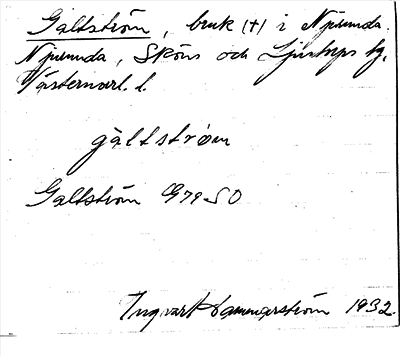 Galtström, bruk (†) i Njurunda.
Njurunda, Sköns och Ljustorps tg,
Västernorrl. l.
galtström
Galtström G79SO
Ingvar Hammarström 1932.